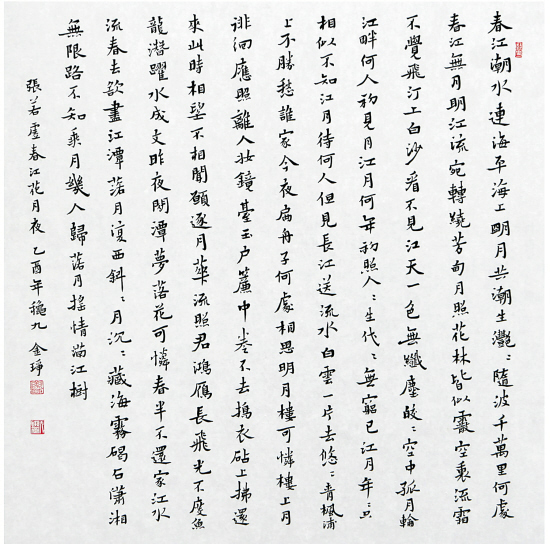 春江潮水連海平海上明月共潮生灧〻隨波千萬里何處
春江無月明江流宛轉繞芳甸月照花林皆似霰空裏流霜
不覺飛汀上白沙看不見江天一色無纖塵皎〻空中孤月輪
江畔何人初見月江月何年初照人〻生代〻無窮已江月年〻只
相似不知江月待何人但見長江送流水白雲一片去悠〻青楓浦
上不勝愁誰家今夜扁舟子何處相思明月樓可憐樓上月
徘徊應照離人妝鏡臺玉户簾中卷不去搗衣砧上拂還
來此時相望不相聞願逐月華流照君鴻雁長飛光不度魚
龍潛躍水成文昨夜閑潭夢落花可憐春半不還家江水
流春去欲盡江潭落月復西斜〻月沉〻藏海霧碣石瀟湘
無限路不知乘月幾人歸落月搖情滿江樹
張若虛春江花月夜 乙酉年穐九 金琤